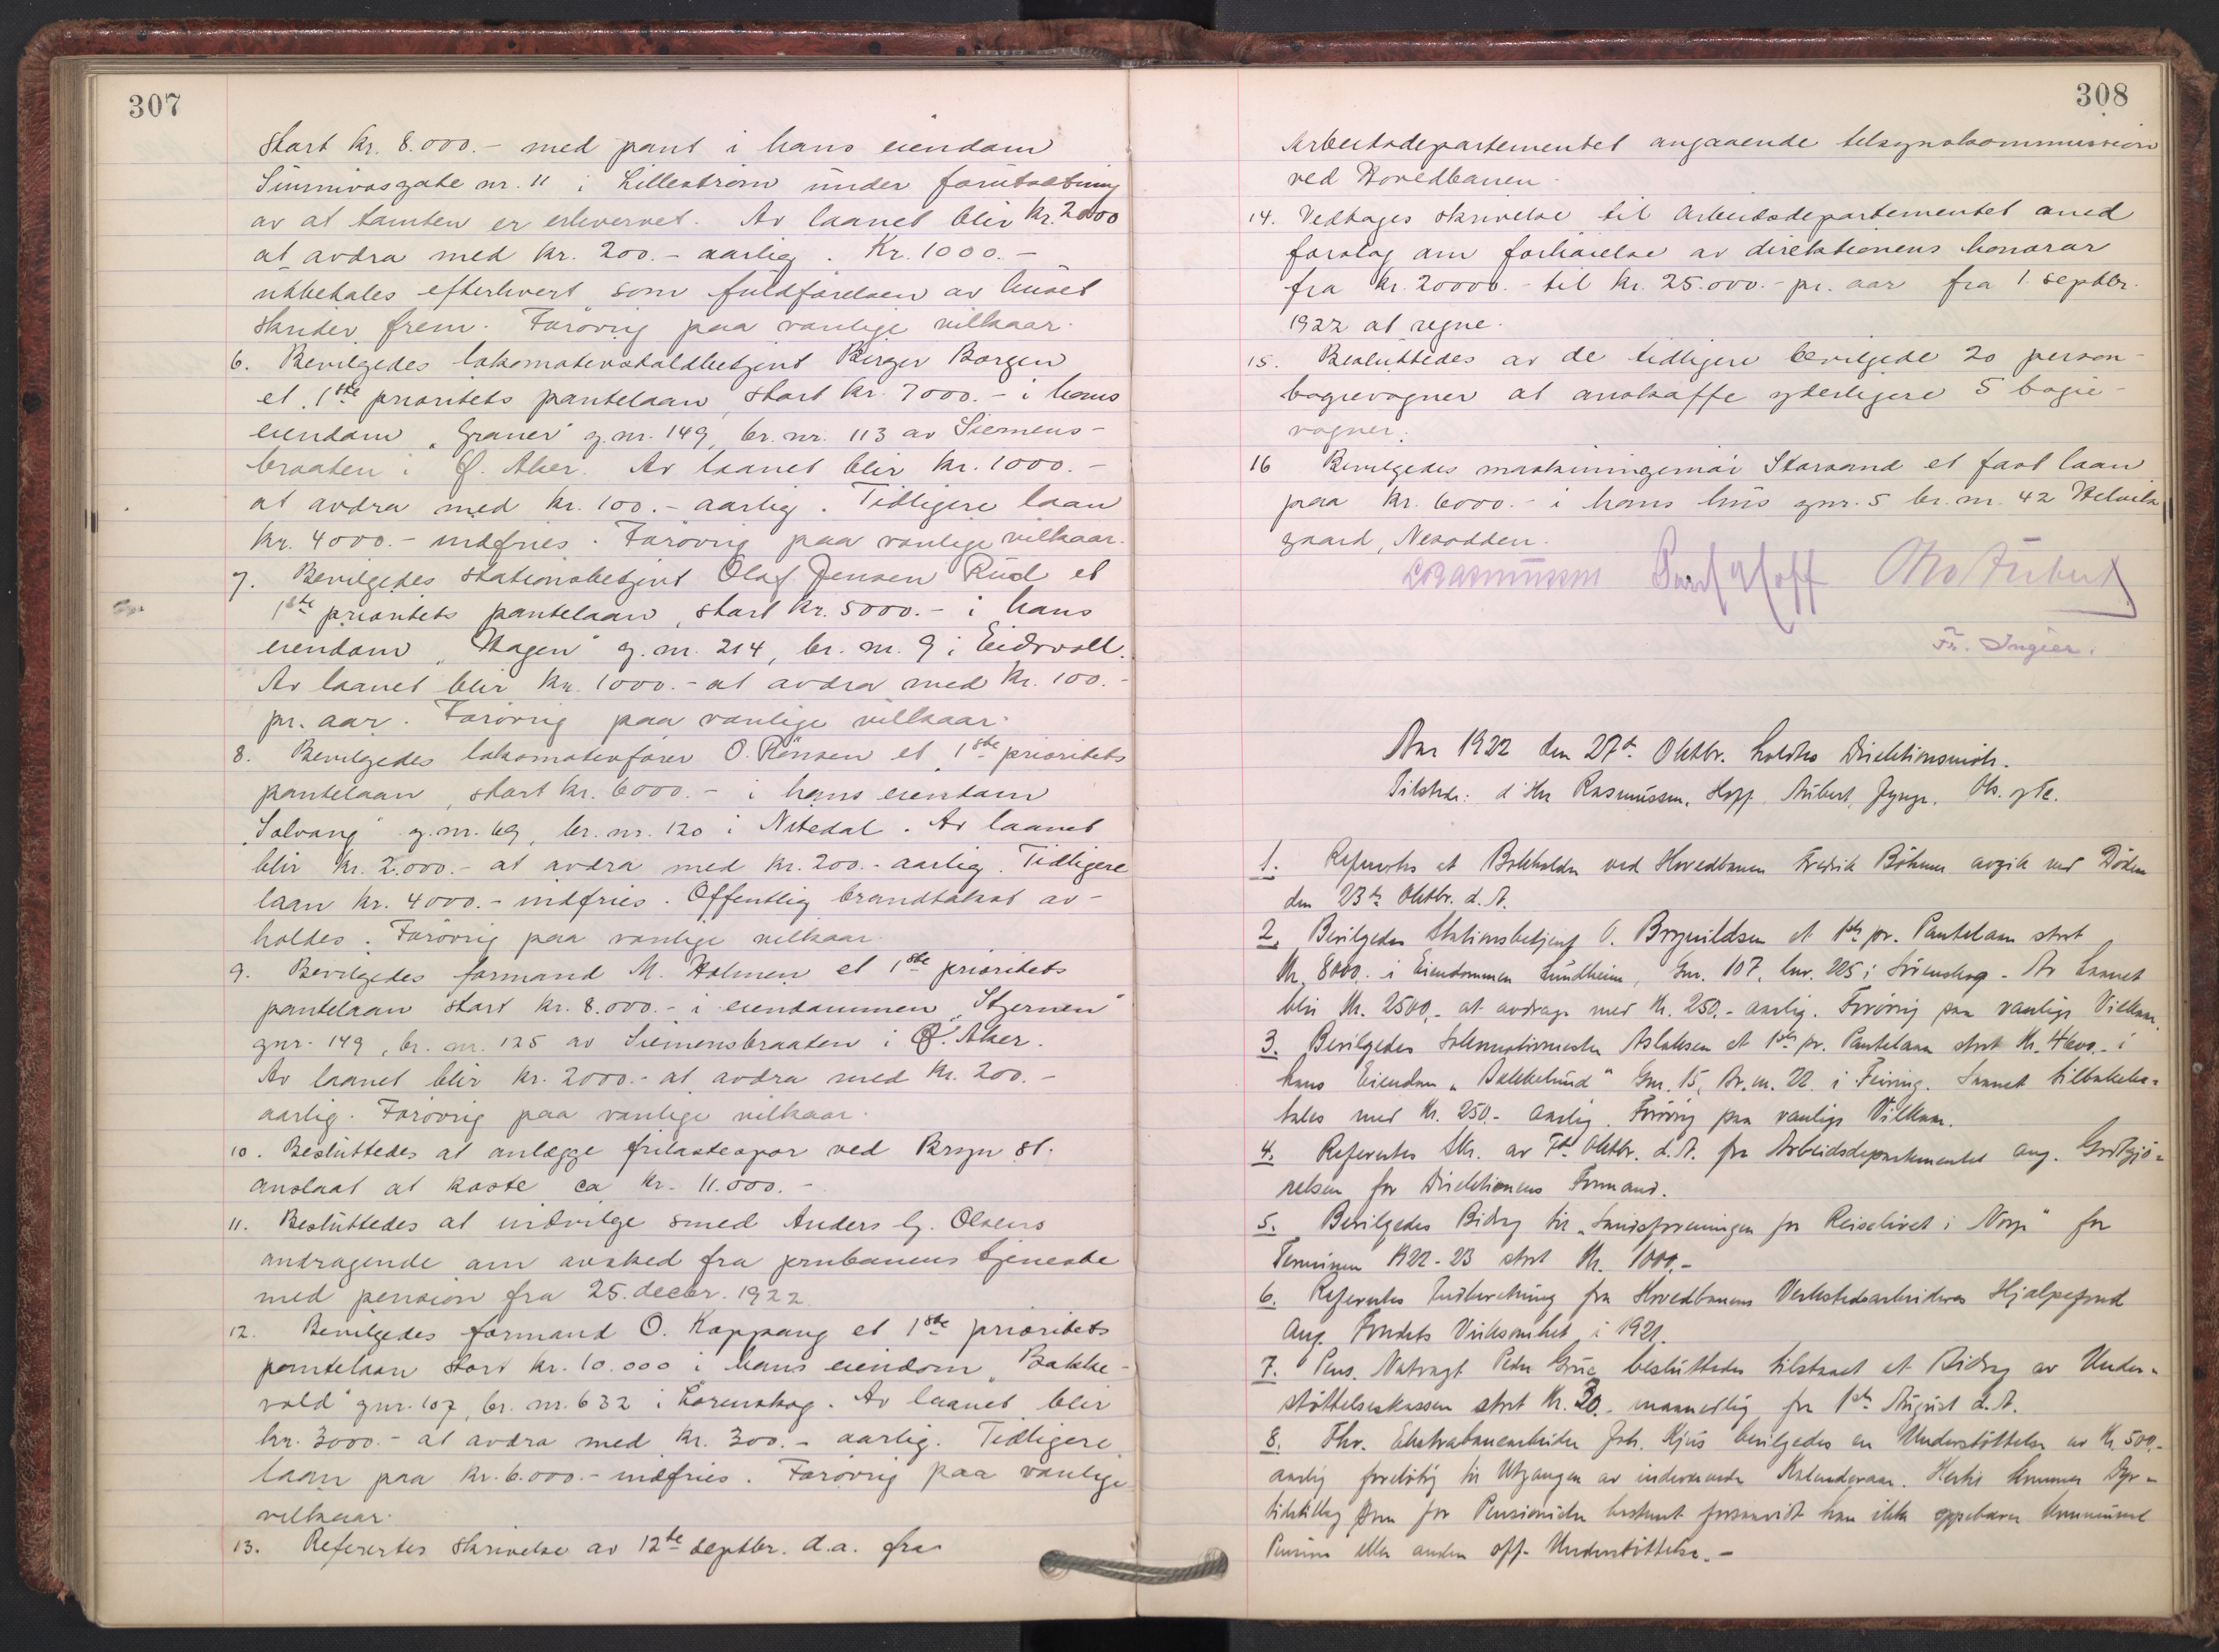 307
stort kr. 8.000.- med pant i hans eiendom
Sinnivasgate nr. 11 i Lillestrøm under forutsætning
av at tomten er erhvervet. Av laanet blir kr. 2000
at avdra med kr. 200.- aarlig. Kr. 1000.-
utbetales efterhvert som fuldførelsen av huset
skrider frem. Forøvrig paa vanlige vilkaar.
6. Bevilgedes lokomotivstaldbetjent Birger Borgen
et 1ste prioritets pantelaan, stort kr. 7000.- i hans
eiendom "Graner" g.nr. 149, br. nr. 113 av Siemens-
braaten i Ø. Aker. Av laanet blir kr. 1000.-
at avdra med kr. 100.- aarlig. Tidligere laan
kr. 4000.- indfries. Forøvrig paa vanlige vilkaar.
7. Bevilgedes stationsbetjent Olaf Jensen Rud et
1ste prioritets pantelaan, stort kr. 5000.- i hans
eiendom "Hagen" g. nr. 214, br. nr. 9 i Eidsvoll.
Av laanet blir kr. 1000.- at avdra med kr. 100.-
pr. aar. Forøvrig paa vanlige vilkaar.
8. Bevilgedes lokomotivfører O. Rønsen et 1ste prioritets
pantelaan, stort kr. 6000.- i hans eiendom
"Solvang" g. nr. 69, br. nr. 120 i Nitedal. Av laanet
blir kr. 2.000.- at avdra med kr. 200.- aarlig. Tidligere
laan kr. 4000.- indfries. Offentlig brandtakst av-
holdes. Forøvrig paa vanlige vilkaar.
9. Bevilgedes formand M. Holmen et 1ste prioritets
pantelaan stort kr. 8.000.- i eiendommen "Stjernen"
gnr. 149, br. nr. 125 av Siemensbraaten i Ø. Aker.
Av laanet blir kr. 2000.- at avdra med kr. 200.-
aarlig. Forøvrig paa vanlige vilkaar.
10. Besluttedes at anlægge frilastespor ved Bryn st.
anslaat at koste ca kr. 11.000.-
11. Besluttedes at indvilge smed Anders G. Olsens
andragende om avsked fra jernbanens tjeneste
med pension fra 25. decbr. 1922.
12. Bevilgedes formand O. Kappang et 1ste prioritets
pantelaan stort kr. 10.000 i hans eiendom "Bakke-
vold" gnr. 107, br. nr. 632 i Lørenskog. Av laanet blir
kr. 3000.- at avdra med kr. 300.- aarlig. Tidligere
laan paa kr. 6.000.- indfries. Forøvrig paa vanlige
vilkaar.
13. Refererter skrivelse av 12te septbr. d.a. fra
308
Arbeidsdepartementet angaaende tilsynskommission
ved Hovedbanen.
14. Vedtages skrivelse til Arbeidsdepartementet med
forslag om forhøielse av direktionens honorar
fra kr. 20000.- til kr. 25.000.- pr. aar fra 1. septbr.
1922 at regne.
15. Besluttedes av de tidligere bevilgede 20 person-
bogievogner at anskaffe yderligere 5 bogie-
vogner.
16 Bevilgedes maskiningeniør Storsand et fast laan
paa kr. 6000.- i hans hus gnr. 5 br. nr. 42 Helvik
gaard, Nesodden.
Rasmussen Hoff Otto Aubert
Fr. Ingier.
Aar 1922 den 27de Oktbr. holdtes Direktionsmöte.
Tilstede: d'Hrr Rasmussen, Hoff, Aubert,
1. Refererte at Bokholder ved Hovedbanen Fredrik Böhmer avgik ved Döden
den 23de Oktbr. d. A.
2. Bevilgedes Stationsbetjent O. Brynildsen et 1ste pr. Pantelaan stort
Kr. 8000.- i Eiendommen Lundheim, Gnr. 107, bnr. 225 i Lörenskog. Av Laanet
blir Kr. 2500.- at avdrage med Kr. 250.- aarlig. Forövrig paa vanlige Vilkaar.
3. Bevilgedes Lokomotivmester Aslaksen et 1ste pr. Pantelaan stort Kr. 4600.- i
hans Eiendom "Bakkelund" Gnr. 15, Br. nr. 22 i Feiring. Laanet tilbakebe-
tales med Kr. 250.- aarlig. Forövrig paa vanlige Vilkaar.
4. Refererter Skr. av 7de Oktbr. d. A. fra Arbeidsdepartementet ang. Godtgjö-
relsen for Direktionens Formand.
5. Bevilgedes Bidrag til "Landsforeningen for Reiselivet i Norge" for
Terminen 1922-23 stort Kr. 1000.-
6. Refererter Indberetning fra Hovedbanens Verkstedsarbeideres Hjælpefond
ang. Fondets Virksomhet i 1921.
7. Pens. Natvagt Peder Grue besluttedes tilstaaet et Bidrag av Under-
stöttelseskassen stort Kr. 30.- maanedlig fra 1ste August d. A.
8. Fhv. Ekstrabanearbeider Joh. Kjus bevilgedes en Understöttelse av Kr. 500.-
aarlig forelöbig til Utgangen av indeværende Kalenderaar. Hertil kommer Dyr-
tidstillæg som for Pensionister bestemt forsaavidt han ikke oppebærer kommunal
Pension eller anden off. Understöttelse.-